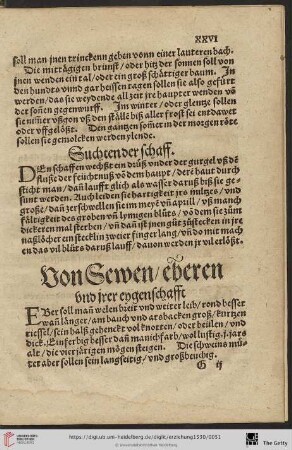 XXVI
soll man jnen trincken geben vonn einer lauteren bach.
Die mittägigen brunst/oder hitz der sonnen soll von
jnen wenden ein tal/oder ein groß schattiger baum. In
den hundts vnnd gar heissen tagen sollen sie also gefürt
werden/das sie weydende all zeit jre haupter wenden võ
der soñen gegenwurff. Im winter/oder glentze sollen
sie nim̃er vßgon vß den ställē biß aller frost sei entdawet
oder vffgelößt. Den gantzen som̃er in der morgen röte
sollen sie gemolcken werden ylende.
Suchten der schaff.
DEn schaffen wechßt ein drüß vnder der gurgel vß dē
fluße der feuchtnuß võ dem haupt/der haut durch
sticht man/dañ laufft glich als wasser daruß biß sie ge
sunt werden. Auch leiden sie hartigkeit jrs miltzes/vnd
große/dañ zer schwellen sie im meyē vñ apuill/vß manch
faltigkeit des groben vñ lymigen blůts/võ dem sie zům
dickeren mal sterben/vñ dañ ist jnen gůt zů stecken in jre
naßlöcher ein stecklin zweier finger lang/vñ do mit mach
en das vil blůts daruß lauff/dauon werden jr vil erlößt.
Von Sewen/eberen
vnd jrer eygenschafft
EBer soll mañ welen breit vnd weiter leib/rond besser
wañ länger/am bauch vnd arsbacken groß/kurtzen
riessel/sein halß gehenckt vol knotten/oder heülen/vnd
dick. Einferbig besser dañ manichfarb/wollustig.j.jars
alt/die vier järigen mögen steigen. Die schweins mü-
ter aber sollen sein langseitig/vnd großbeuchig.
G ij
https://digi.ub.uni-heidelberg.de/diglit/erziehung1530/0051
© Universitätsbibliothek Heidelberg
The Getty